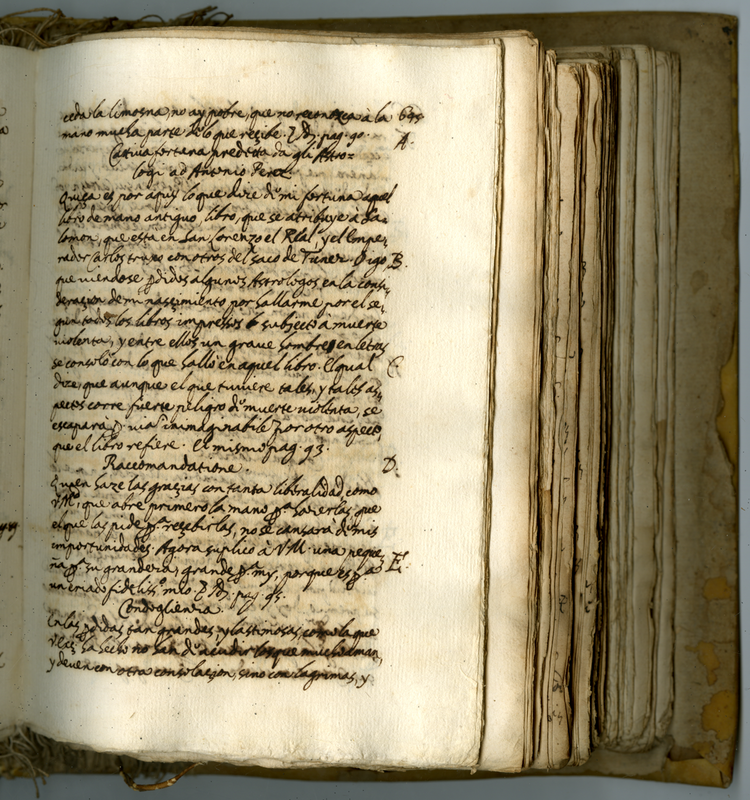 ceda la limosna, no ay pobre, que no reconozca à la 695
mano mucha parte de lo que recibe. pag. 90. A.
Cattiva fortuna predetta da gli Astro=
logi ad Antonio Perez.
Quiça es por aqui lo que dize di mi fortuna aquel
libro de mano antiguo libro, que se atribuye à Sa-
lomon, que està en San Lorenzo el Rial, y el Empe-
rador Carlos truxo con otros del saco de Tunez. Digo B.
que viendose pdidos algunos Astrologos en la consi-
deracion de mi nascimiento por hallarme por el se-
gun todos los libros impressos subjecto à muerte
violenta, y entre ellos un grave hombre en letras
se consolò con lo que hallò en aquel libro. El qual C.
dize, que aunque el que tuviere tales, y tales as-
pectos corre fuerte peligro di muerte violenta, se
escaparà via inimaginabile por otro aspecto,
que el libro refiere. El mismo pag. 93.
Raccomandatione. D.
Quien haze las grazias con tanta liberalidad, como
VM, que abre primero la mano pª hazerlas, que
el que las pide pª rescebirlas, no se cansarà di mis
importunidades. Agora suplico à VM. una peque-
ña pª su grandeza, grande pª my, porque es pª E.
un criado fidelissº mio. pag. 95.
Condoglienza.
En las pdidas tan grandes, y lastimosas, como la que
ha hecho no han di acudir los que mucho aman,
y deven con otra consolacion, sino con lagrimas, y